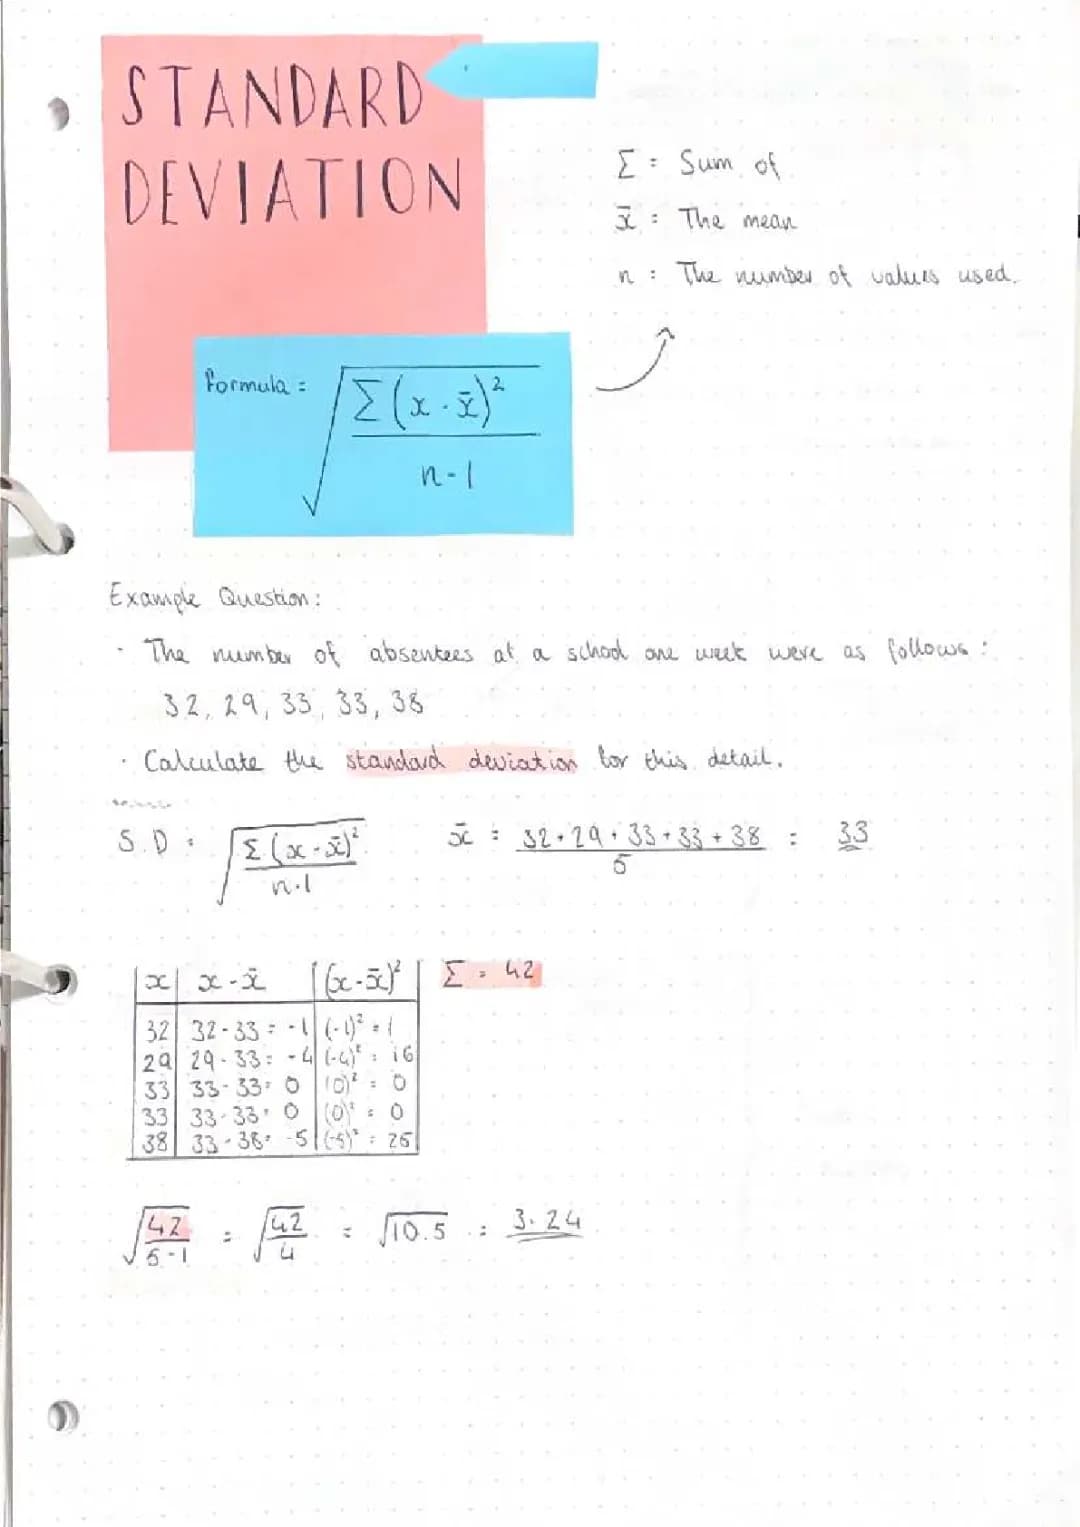 STANDARD
DEVIATION
Σ = Sum of
x̄ = The mean
n = The number of values used.
formula = √(Σ(x - x̄)² / n-1)
Example Question:
· The number of absentees at a school one week were as follows:
32, 29, 33, 33, 38
· Calculate the standard deviation for this detail.
S.D = √(Σ(x - x̄)² / n-1)   x̄ = 32+29+33+33+38 / 5 = 33
x | x - x̄ | (x - x̄)²   Σ = 42
32 | 32-33 = -1 | (-1)² = 1
29 | 29-33 = -4 | (-4)² = 16
33 | 33-33 = 0 | (0)² = 0
33 | 33-33 = 0 | (0)² = 0
38 | 33-38 = -5 | (-5)² = 25
√(42 / 5-1) = √(42 / 4) = √10.5 = 3.24